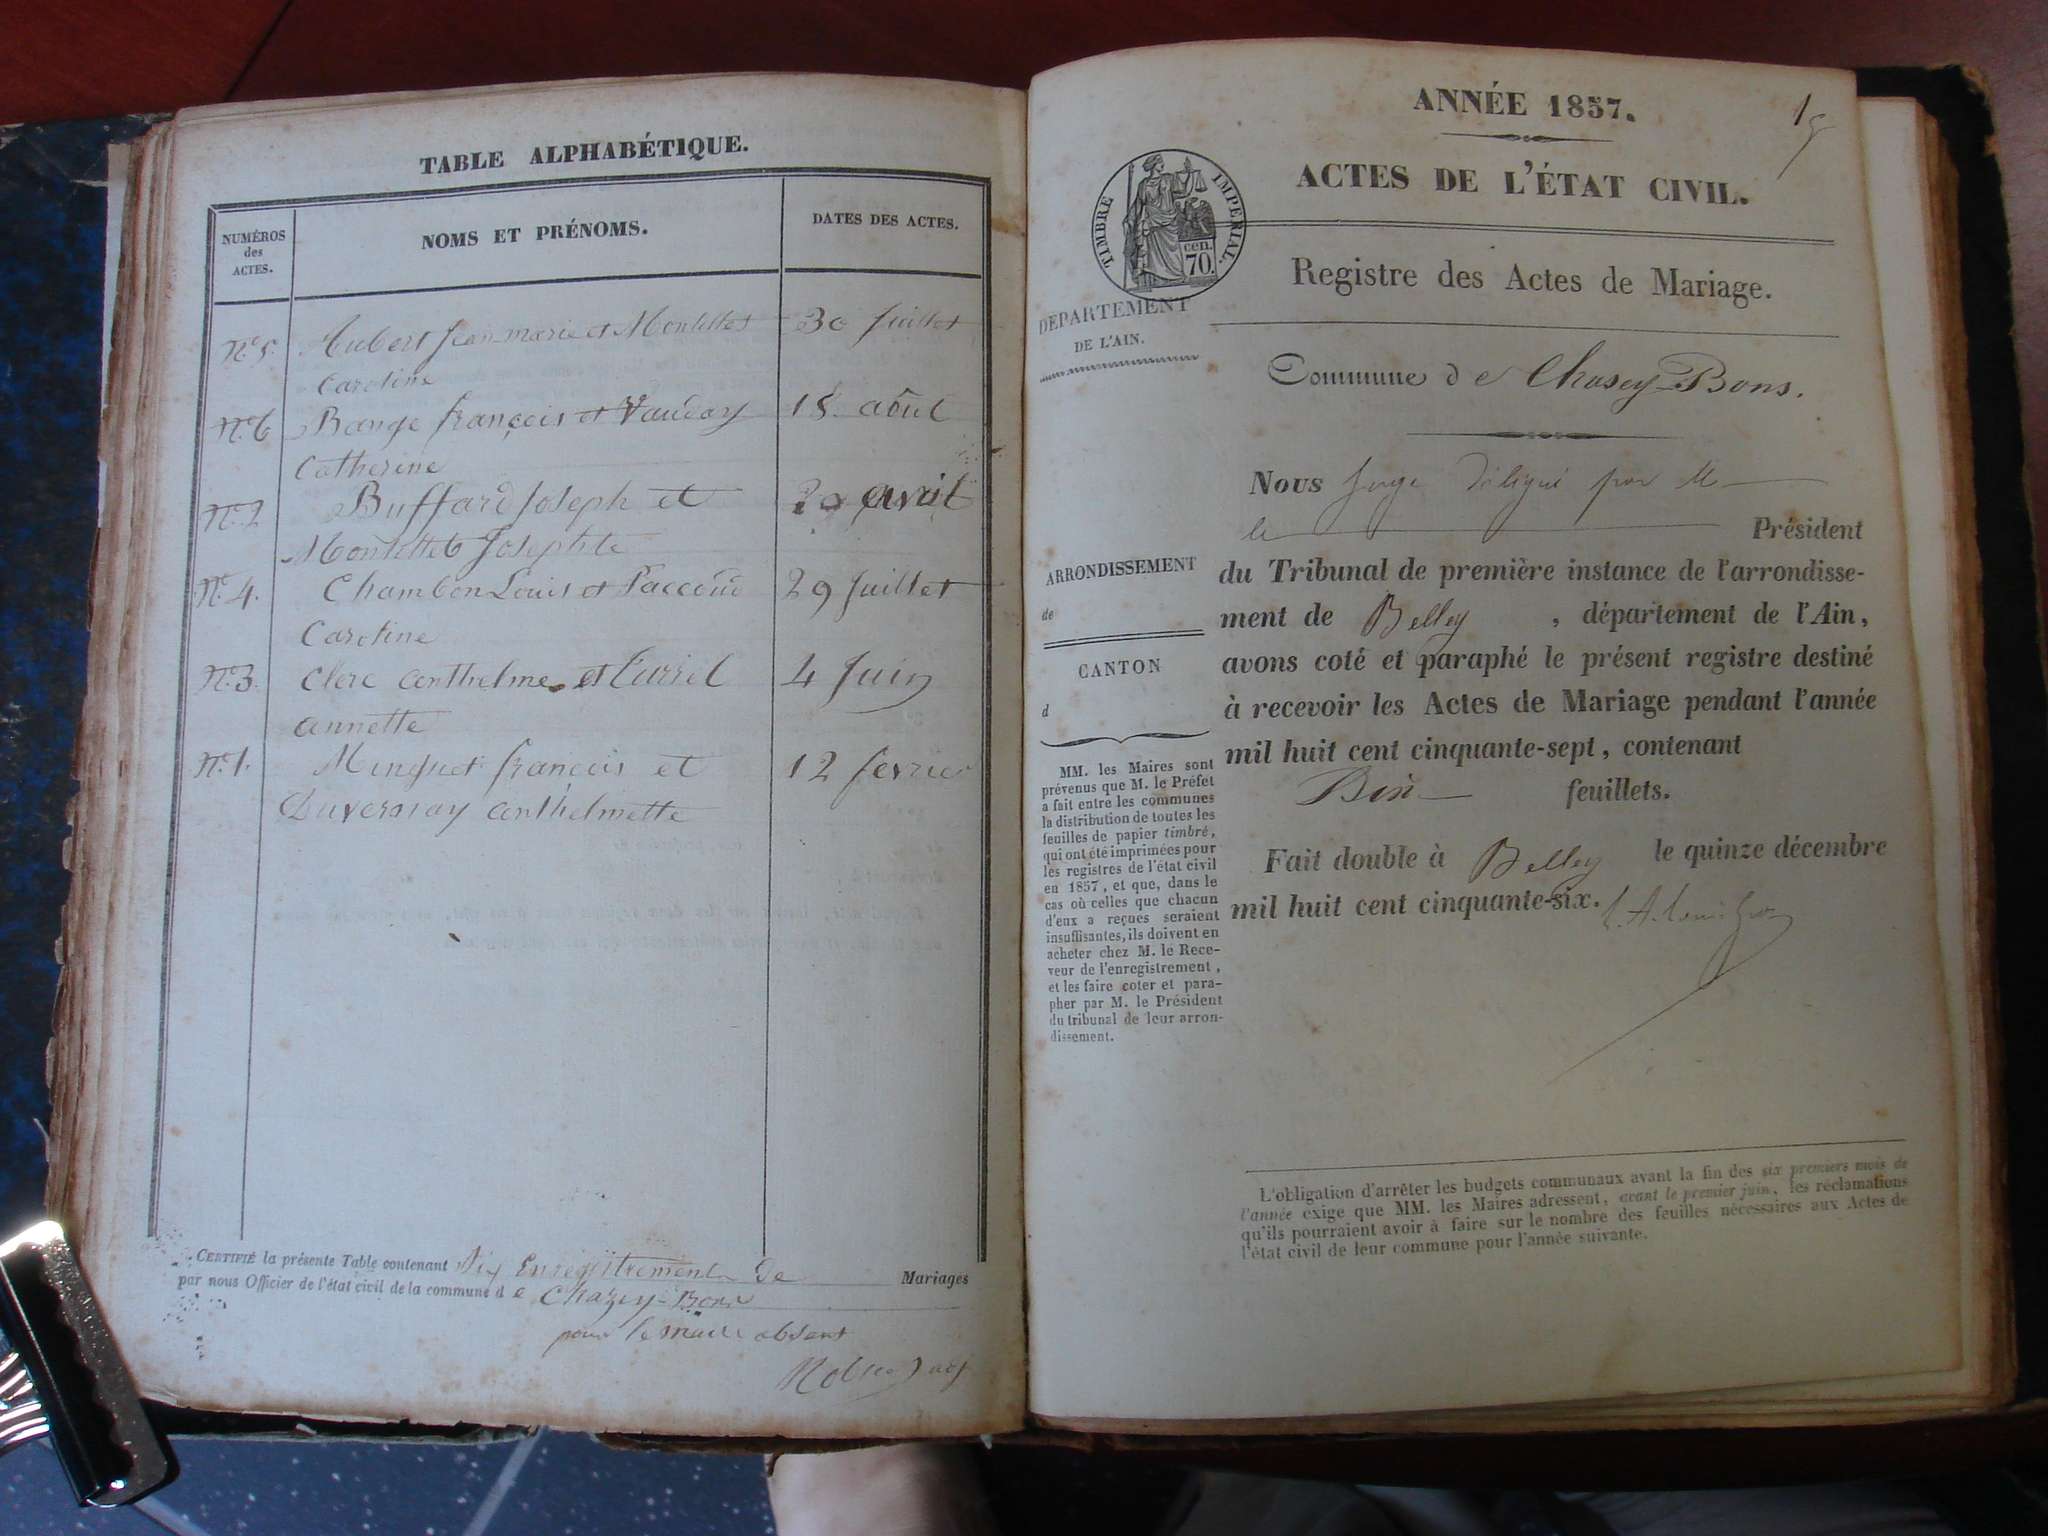 TABLE ALPHABÉTIQUE.
NUMÉROS
des
ACTES.
NOMS ET PRÉNOMS.
DATES DES ACTES.
N.° 5. Aubert Jean marie et Montillet 30 Juillet
Caroline
N.° 6 Bange françois et Vaudray 15 août
Catherine
N.° 2 Buffard Joseph et 20 avril
Montillet Josephte
N.° 4. Chambon Louis et Paccoud 29 Juillet
Caroline
N.° 3. Clerc anthelme et Curril 4 Juin
annette
N.° 1. Minguet françois et 12 fevrier
Duvernay anthelmette
CERTIFIÉ la présente Table contenant Six Enregistrements de Mariages
par nous Officier de l'état civil de la commune de Chazey-Bons
pour le maire absent
adj
ANNÉE 1857.
1
ACTES DE L'ÉTAT CIVIL.
TIMBRE IMPÉRIAL.
cen.
70.
Registre des Actes de Mariage.
DÉPARTEMENT
DE L'AIN.
Commune de Chasey-Bons.
Nous Juge délégué par M
le Président
du Tribunal de première instance de l'arrondisse-
ment de Belley, département de l'Ain,
avons coté et paraphé le présent registre destiné
à recevoir les Actes de Mariage pendant l'année
mil huit cent cinquante-sept, contenant
feuillets.
Fait double à Belley le quinze décembre
mil huit cent cinquante-six.
ARRONDISSEMENT
de
CANTON
d
MM. les Maires sont
prévenus que M. le Préfet
a fait entre les communes
la distribution de toutes les
feuilles de papier timbré,
qui ont été imprimées pour
les registres de l'état civil
en 1857, et que, dans le
cas où celles que chacun
d'eux a reçues seraient
insuffisantes, ils doivent en
acheter chez M. le Rece-
veur de l'enregistrement,
et les faire coter et para-
pher par M. le Président
du tribunal de leur arron-
dissement.
L'obligation d'arrêter les budgets communaux avant la fin des six premiers mois de
l'année exige que MM. les Maires adressent, avant le premier juin, les réclamations
qu'ils pourraient avoir à faire sur le nombre des feuilles nécessaires aux Actes de
l'état civil de leur commune pour l'année suivante.